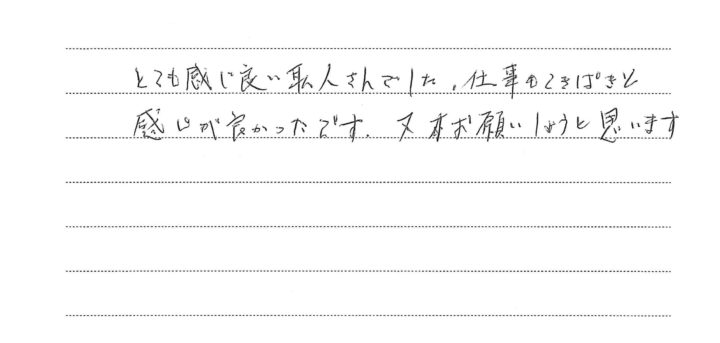 とても感じ良い職人さんでした、仕事もてきぱきと
感じが良かったです、又お願いしようと思います